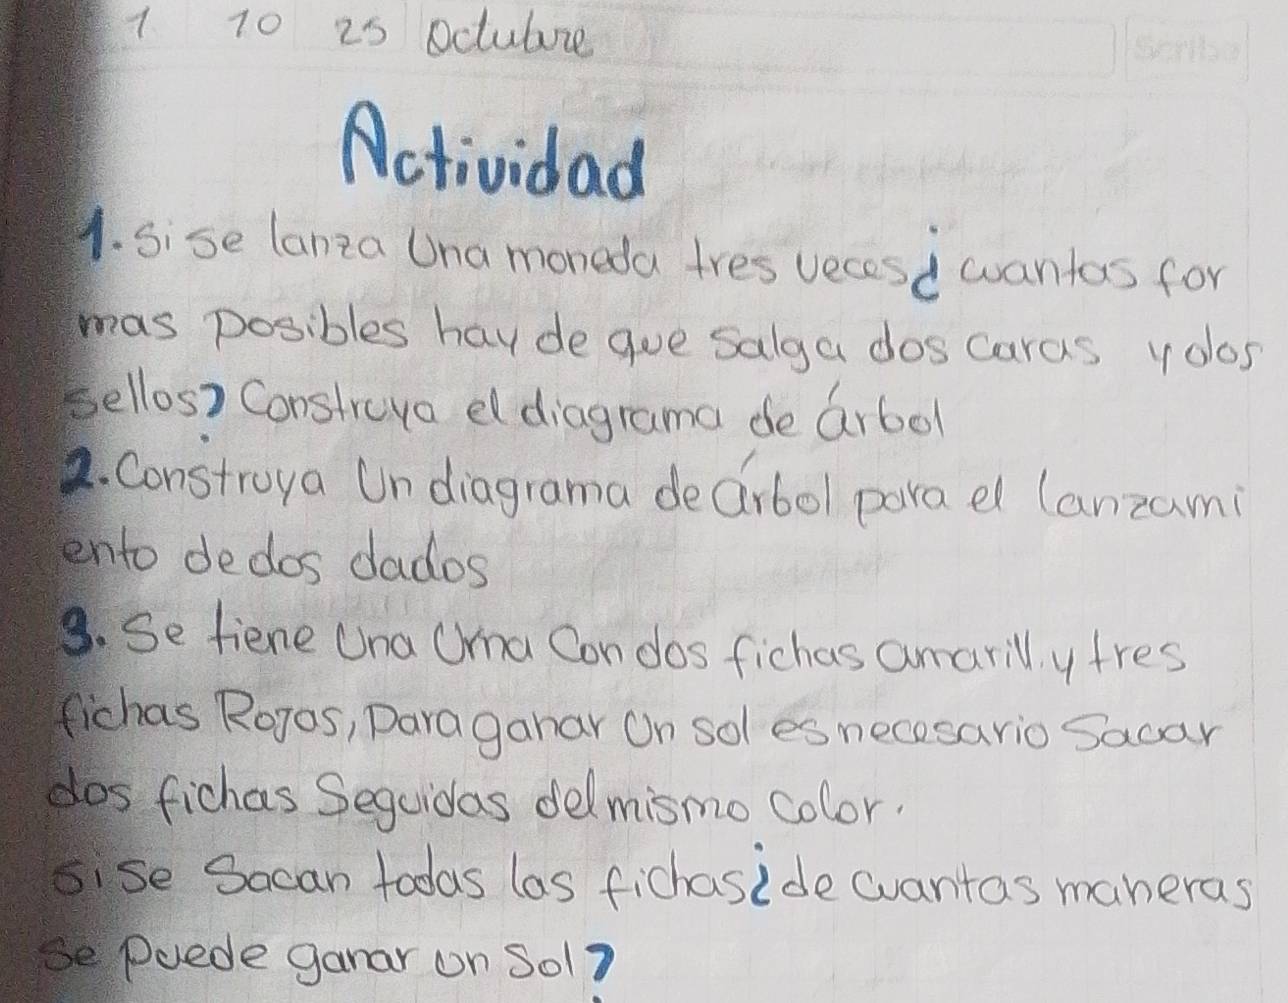 1 10 25 Octubre
Scribe
Actividad
1. si se lanza Una moneda tres veces ¿ cuantas for
mas posibles hay de que salga dos caras y dos
sellos? Construya el diagrama de árbol
2. Construya Un diagrama de árbol para el lanzami
ento de dos dados
3. Se tiene Una Urna Con dos fichas amarill. y tres
fichas Rojas, para ganar Un sol es necesario sacar
dos fichas Seguidas del mismo Color.
si se Sacan todas las fichas ¿ de cuantas maneras
se puede ganar un Sol?